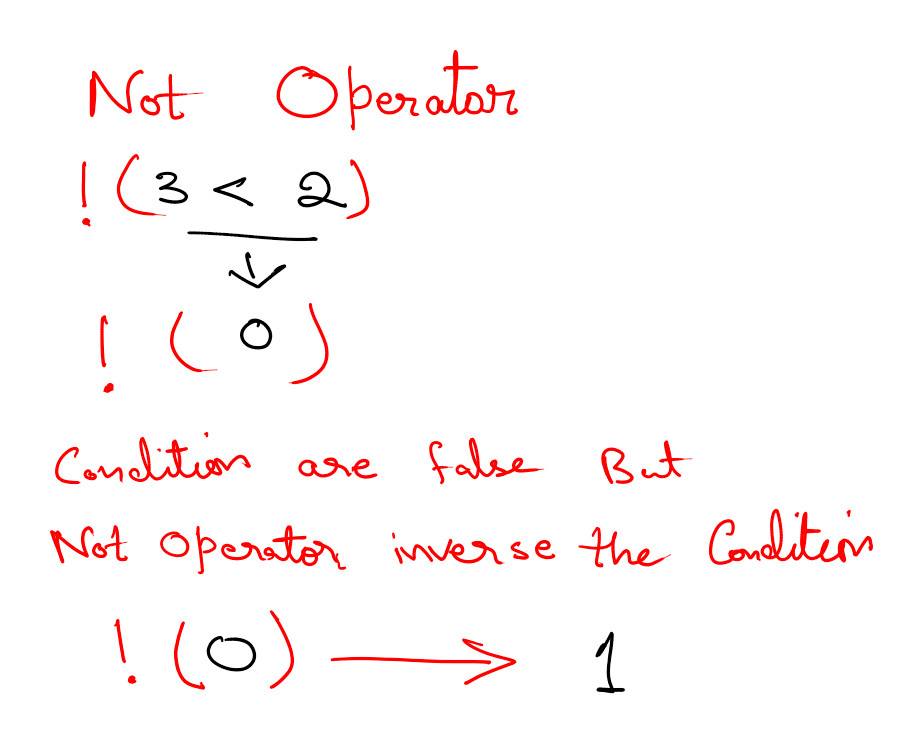 Not Operator
!(3 < 2)
! ( 0 )
Condition are false But
Not Operator inverse the Condition
! (0) → 1